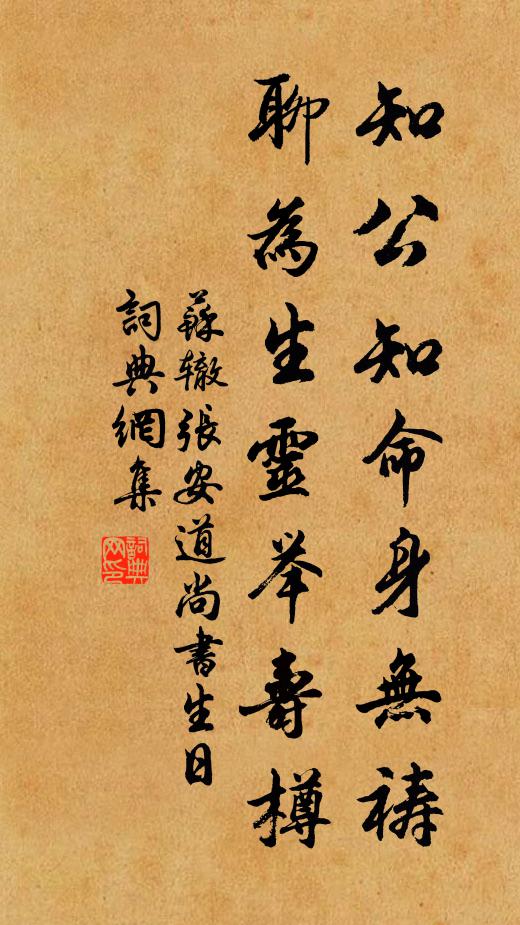 知公知命身無禱
聊為生靈举壽樽
蘇辙張安道尚書生日
詞典網集
詞典网印